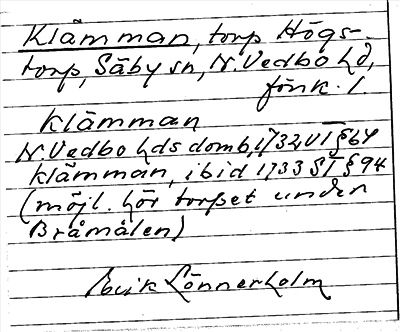 Klämman, torp Högs-
torp, Säby sn, N. Vedbo hd,
Jönk. l.
Klämman
N. Vedbo hds domb, 1732 VT § 64
Klämman, ibid 1733 ST § 94
(möjl. hör torpet under
Bråmålen)
Erik Lönnerholm